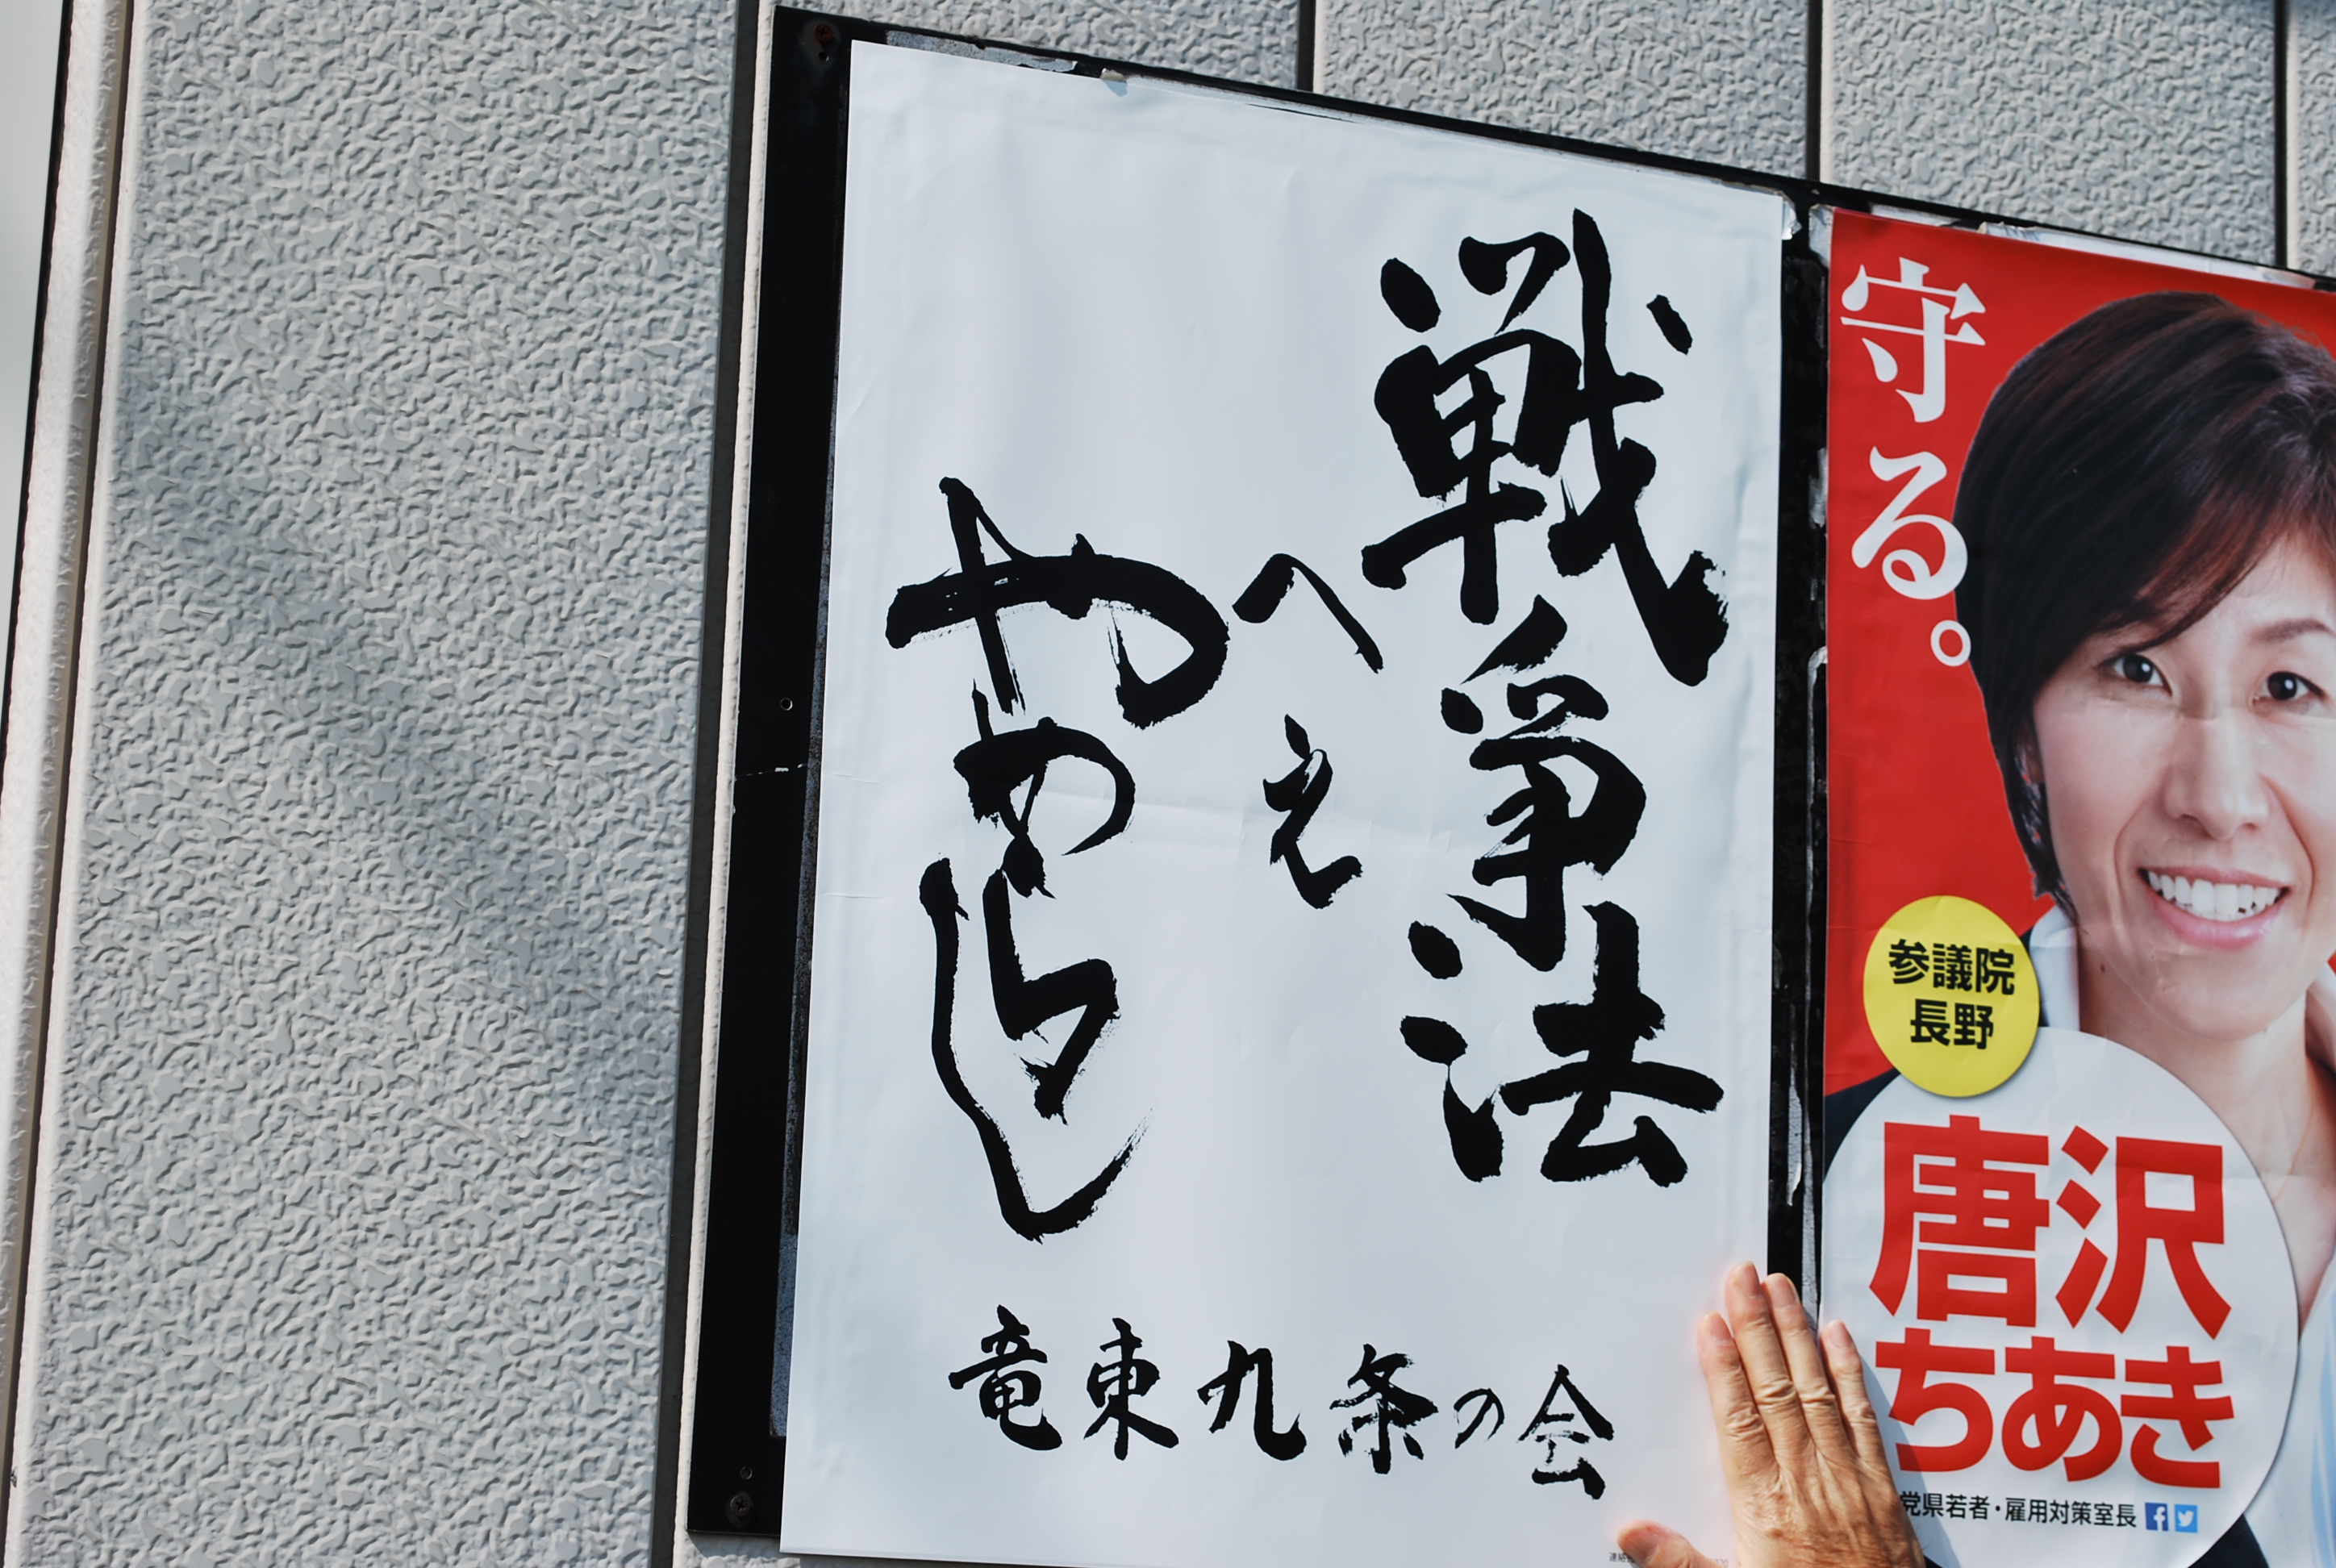 戦争法
へえ
やめらし
竜東九条の会
守る。
参議院
長野
唐沢
ちあき
党県若者・雇用対策室長